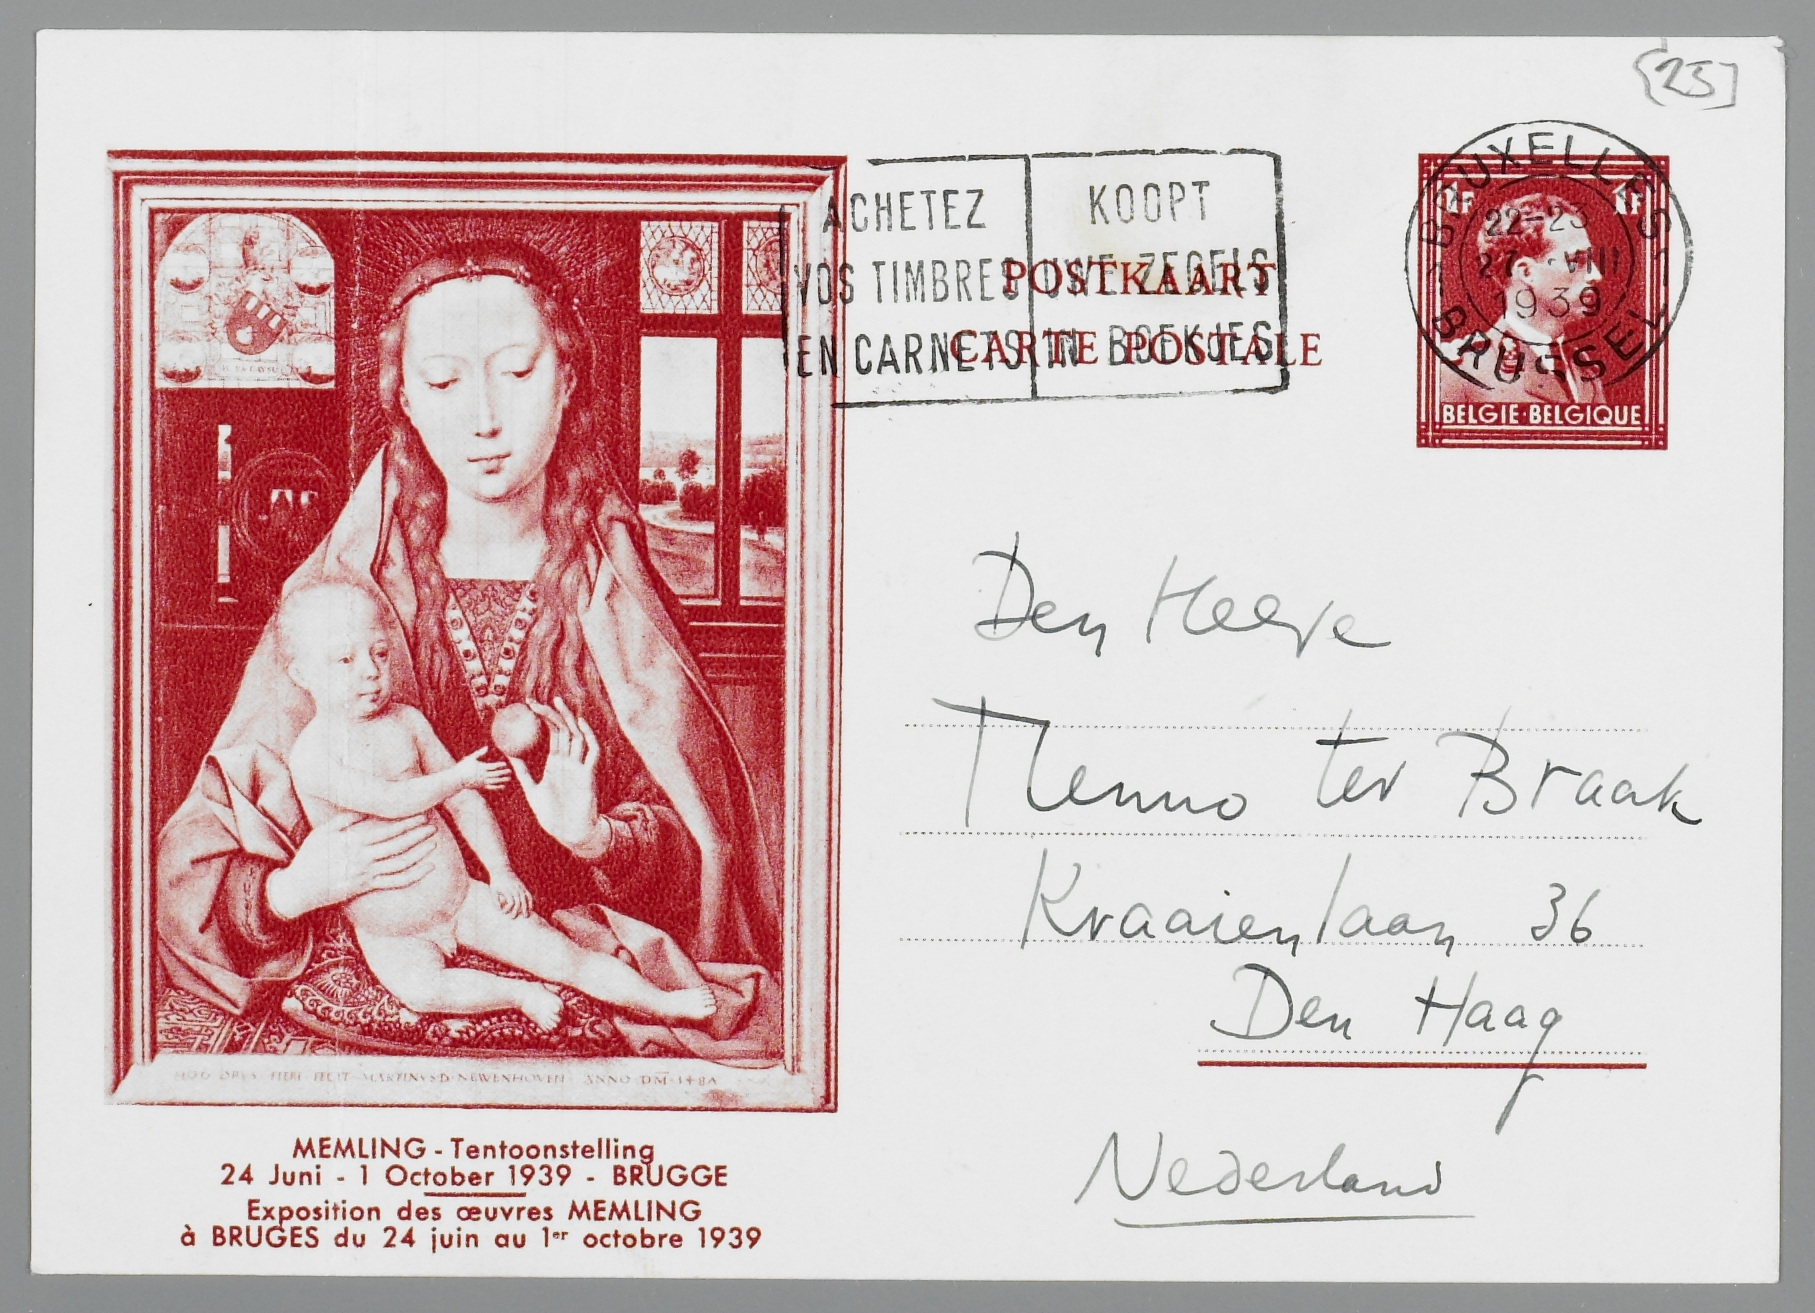 [25]
ACHETEZ
VOS TIMBRES
EN CARNETS
KOOPT
UWE ZEGELS
IN BOEKJES
POSTKAART
CARTE POSTALE
1F 1F
BRUXELLES
22-23
27 VIII
1939
BRUSSEL
BELGIE·BELGIQUE
Den Heere
Menno ter Braak
Kraaienlaan 36
Den Haag
Nederland
HOC OPUS FIERI FECIT MARTINVS D NEWENHOVEN ANNO DM 1487
MEMLING - Tentoonstelling
24 Juni - 1 October 1939 - BRUGGE
Exposition des œuvres MEMLING
à BRUGES du 24 juin au 1er octobre 1939